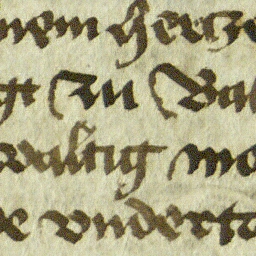 nem hertze
gt zu Bal
waltig mo
e vndert